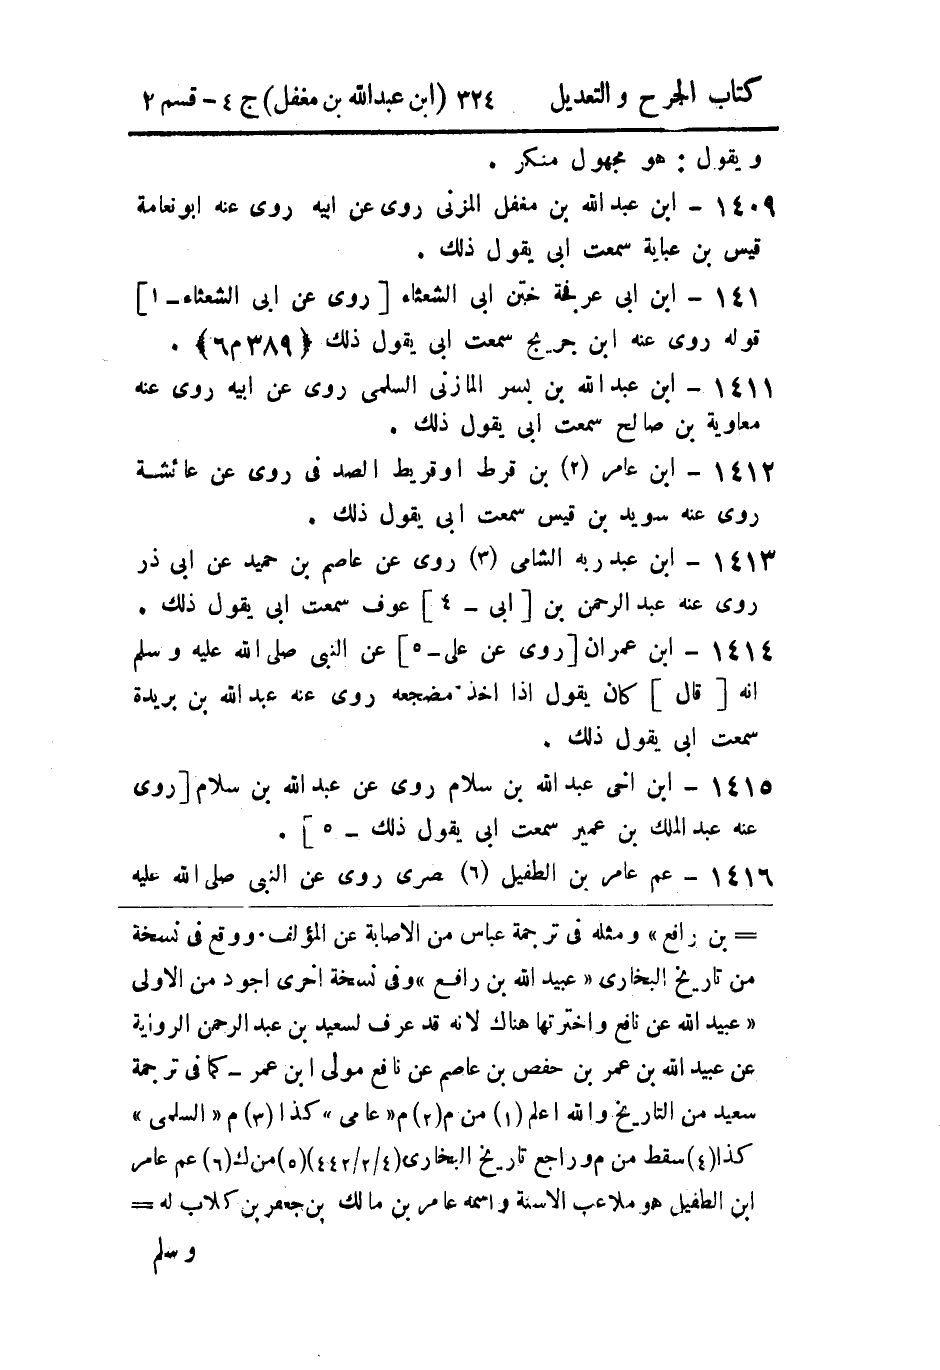 كتاب الجرح والتعديل ٣٢٤ (ابن عبدالله بن مغفل) ج ٤ - قسم ٢
ويقول : هو مجهول منكر .
١٤٠٩ - ابن عبد الله بن مغفل المزنى روى عن ابيه روى عنه ابو نعامة
قيس بن عباية سمعت ابى يقول ذلك .
١٤١ - ابن ابى عرفجة ختن ابى الشعثاء [ روى عن ابى الشعثاء - ١ ]
قوله روى عنه ابن جريج سمعت ابى يقول ذلك ﴿ ٣٨٩ م ٦ ﴾ .
١٤١١ - ابن عبد الله بن بسر المازنى السلمى روى عن ابيه روى عنه
معاوية بن صالح سمعت ابى يقول ذلك .
١٤١٢ - ابن عامر (٢) بن قرط او قريط الصد فى روى عن عائشة
روى عنه سويد بن قيس سمعت ابى يقول ذلك .
١٤١٣ - ابن عبد ربه الشامى (٣) روى عن عاصم بن حميد عن ابى ذر
روى عنه عبد الرحمن بن [ ابى - ٤ ] عوف سمعت ابى يقول ذلك .
١٤١٤ - ابن عمران [ روى عن على - ٥ ] عن النبى صلى الله عليه وسلم
انه [ قال ] كان يقول اذا اخذ مضجعه روى عنه عبد الله بن بريدة
سمعت ابى يقول ذلك .
١٤١٥ - ابن اخى عبد الله بن سلام روى عن عبد الله بن سلام [ روى
عنه عبد الملك بن عمير سمعت ابى يقول ذلك - ٥ ] .
١٤١٦ - عم عامر بن الطفيل (٦) بصرى روى عن النبى صلى الله عليه
= بن رافع » ومثله فى ترجمة عباس من الاصابة عن المؤلف . ووقع فى نسخة
من تاريخ البخارى « عبيد الله بن رافع » وفى نسخة اخرى اجود من الاولى
« عبيد الله عن نافع واخترتها هناك لانه قد عرف لسعيد بن عبد الرحمن الرواية
عن عبيد الله بن عمر بن حفص بن عاصم عن نافع مولى ابن عمر - كما فى ترجمة
سعيد من التاريخ والله اعلم (١) من م (٢) م « عامى » كذا (٣) م « السلمى »
كذا (٤) سقط من م وراجع تاريخ البخارى (٤/٢/٤٤٢) (٥) من ك (٦) عم عامر
ابن الطفيل هو ملاعب الاسنة واسمه عامر بن مالك بن جعفر بن كلاب له =
وسلم